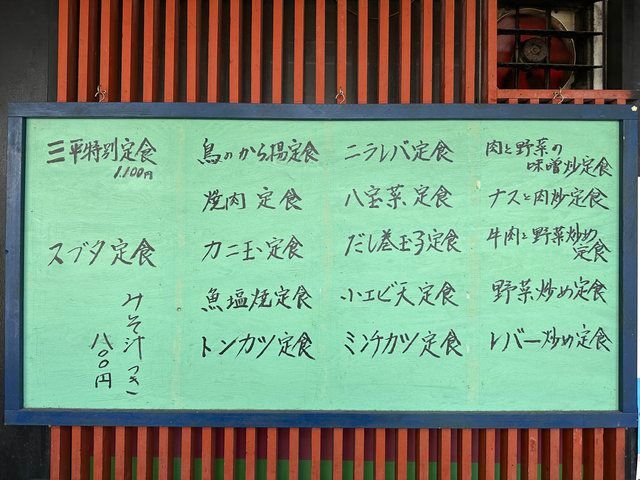 三平特別定食
1.100円
スブタ定食
みそ汁つき
八〇〇円
鳥のから揚定食
焼肉定食
カニ玉定食
魚塩焼定食
トンカツ定食
ニラレバ定食
八宝菜定食
だし巻玉子定食
小エビ天定食
ミンチカツ定食
肉と野菜の
味噌炒定食
ナスと肉炒定食
牛肉と野菜炒め
定食
野菜炒め定食
レバー炒め定食